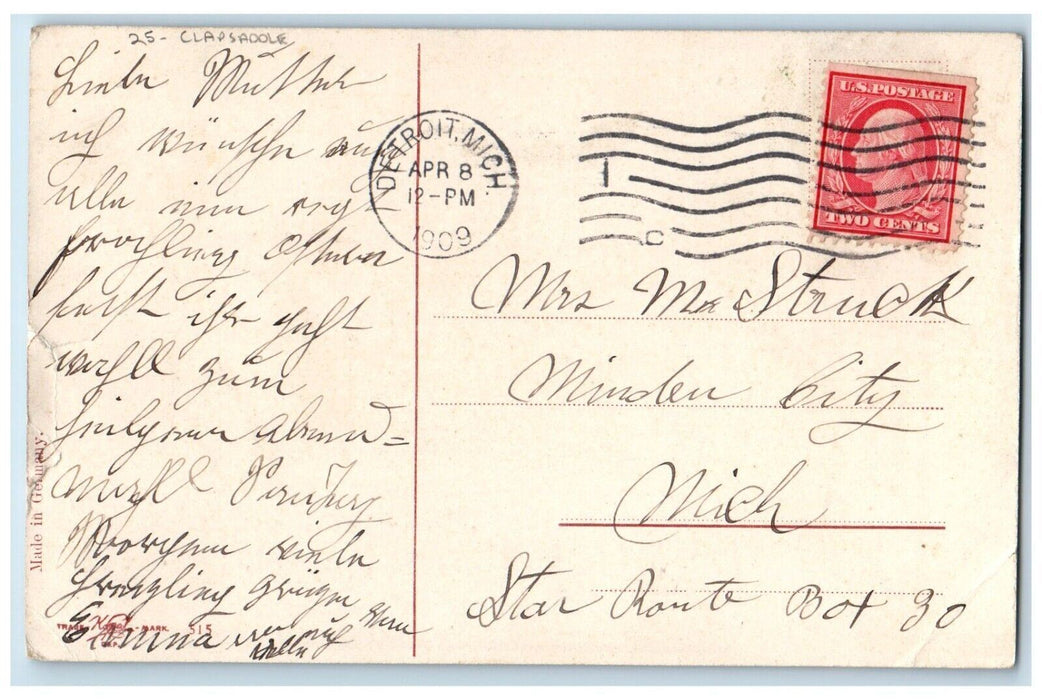 25- CLAPSADDLE
Liebe Mutter
ich wünsche euch
alle ein recht
fröhliches Ostern
wohll zum
heiligen Abend=
mahll Sonntag
Morgen viele
Emma
Made in Germany.
TRADE MARK. 515
DETROIT, MICH.
APR 8
12-PM
1909
U.S. POSTAGE
TWO CENTS
Mrs Ma Struck
Minden City
Mich
Star Route Box 30